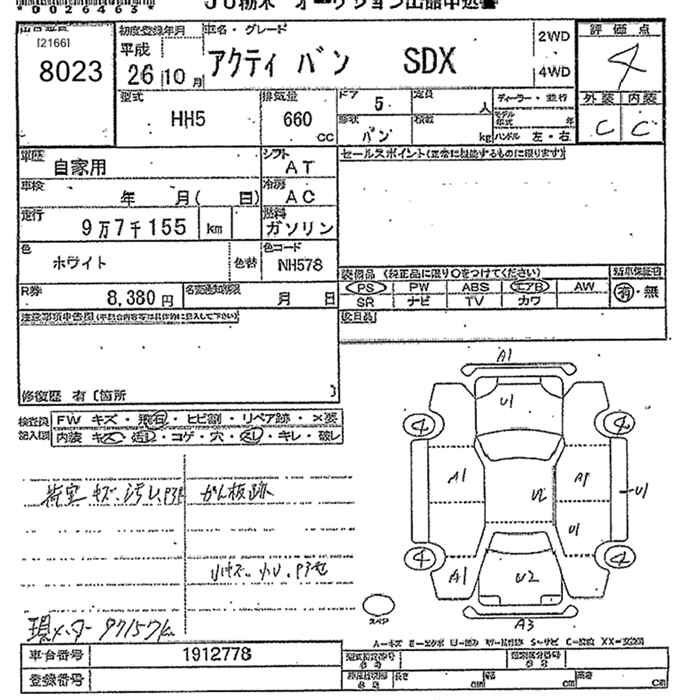 0026463
JU栃木 オークション出品申込書
I21661
8023
初度登録年月
平成
26 10 月
車名・グレード
アクティ バン SDX
2WD
4WD
評価点
4
外装 内装
C C
型式
HH5
排気量
660 cc
ドア 5
定員 人
形状 バン
積載 kg
ディーラー・並行
モデル年式 年
ハンドル 左・右
車歴 自家用
シフト AT
セールスポイント(正常に機能するものに限ります)
車検 年 月( 日)
冷房 AC
走行 9万7千155 km
燃料 ガソリン
色 ホワイト
色替
色コード NH578
装備品 (純正品に限り○をつけてください)
新車保証書
PS PW ABS エアB AW
有・無
SR ナビ TV カワ
R券 8,380円
名義変更期限 月 日
注意事項申告欄
修復歴 有 (箇所 )
検査員記入欄
FW キズ・飛石・ヒビ割・リペア跡・×要
内装 キズ・汚レ・コゲ・穴・スレ・キレ・破レ
荷室 キズ・汚レ
かん板跡
現メーター 97157km
A1
U1
4 4
A1 U2 A1
U1 U1
4 4
A1 U2
A3
スペア
車台番号 1912778
登録番号
型式指定番号
類別区分番号
長さ cm 幅 cm 高さ cm